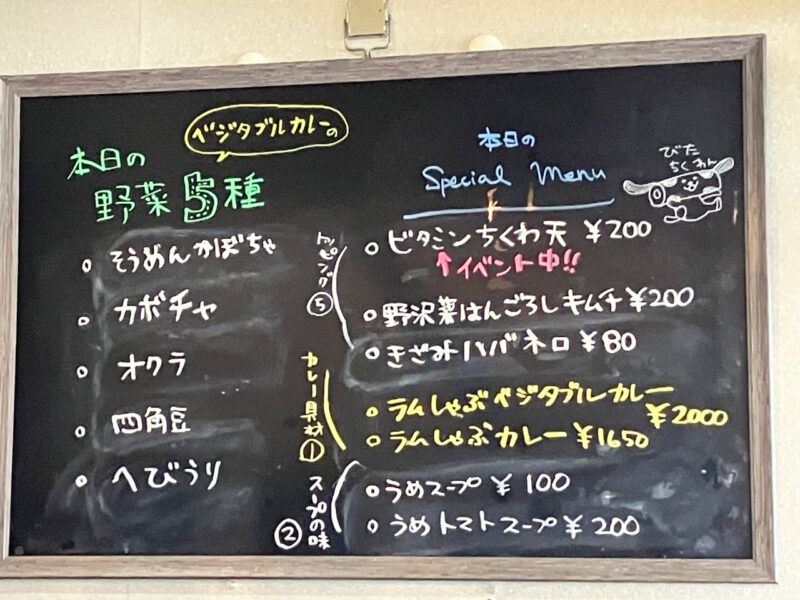 ベジタブルカレーの
本日の
野菜5種
○ そうめんかぼちゃ
○ カボチャ
○ オクラ
○ 四角豆
○ へびうり
本日の
Special Menu
びた
ちくわん
トッピング⑤
○ ビタミンちくわ天 ¥200
↑イベント中!!
○ 野沢菜はんごろしキムチ ¥200
○ きざみハバネロ ¥80
カレー具材①
○ ラムしゃぶベジタブルカレー
¥2000
○ ラムしゃぶカレー ¥1650
スープの味②
○ うめスープ ¥100
○ うめトマトスープ ¥200